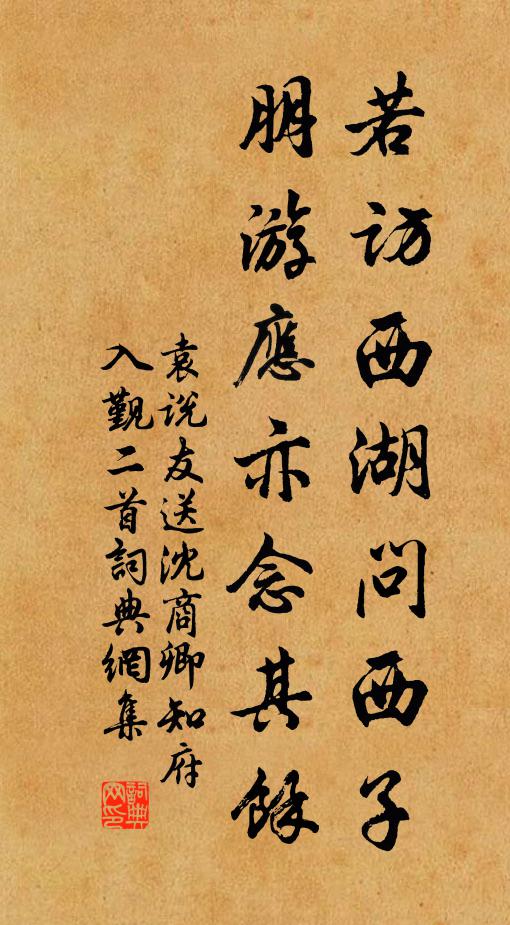 若访西湖問西子
朋游應亦念其餘
袁说友送沈商卿知府
入觐二首詞典網集
詞典网印